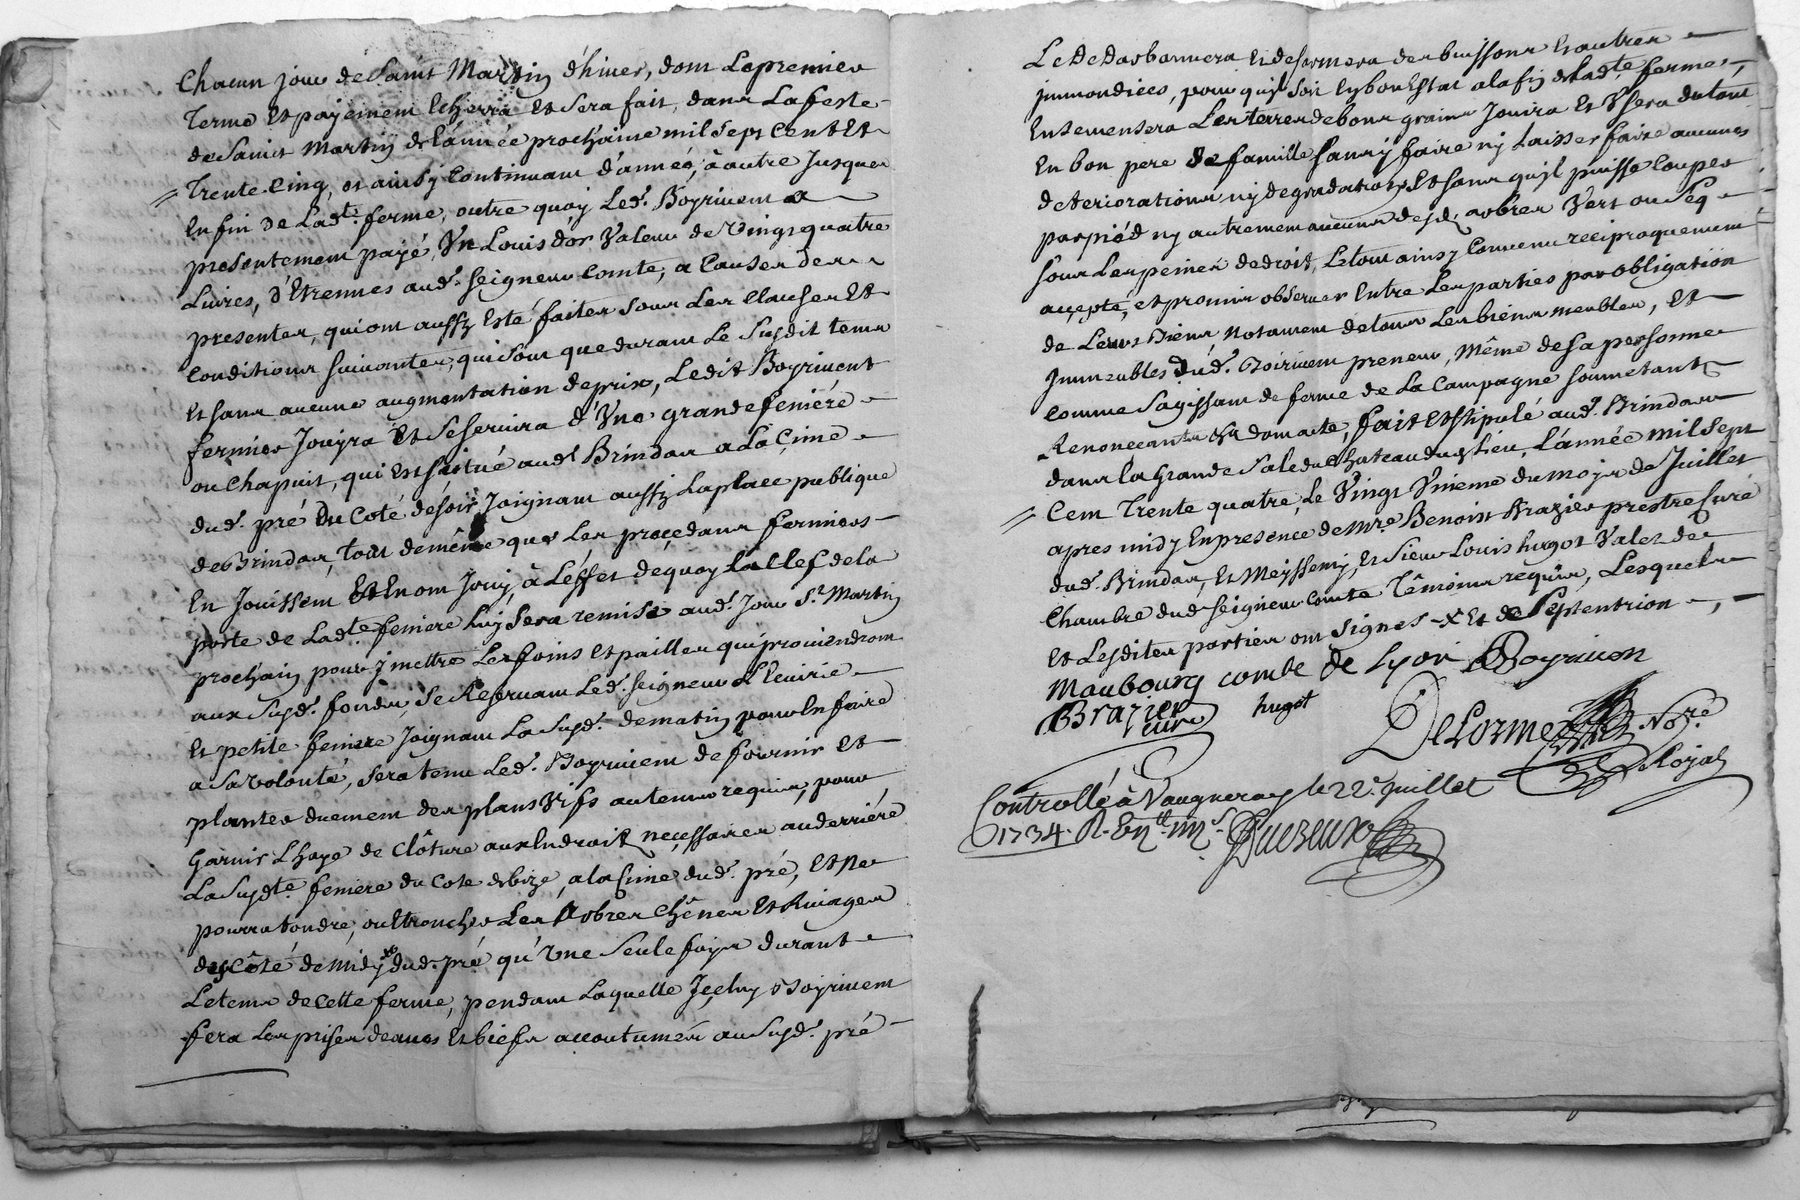 Chacun jour de Saint Martin d'hiver, dont Le premier
Terme Et payement Echerra Et Sera fait, dans La feste
de Saint Martin de L'année prochaine mil sept Cent Et
Trente Cinq, et ainsy Continuant d'année, à autre Jusques
En fin de Ladte. ferme, outre quoy Led. Boyrivent a
presentement payé Vn Louis d'or Valeur de Vingt quatre
Livres, d'Etrennes aud. Seigneur Comte, a Causes des
presentes, qui ont aussy Esté faites sous Les Clauses Et
Conditions suivantes, qui sont que durant Le Susdit tems
Et sans aucune augmentation de prix, Ledit Boyrivent
fermier Jouyra Et Se Servira d'Vne grande feniere
ou Chapuit, qui Est scitué aud. Brindas a La Cime
dud. pré Du Coté de soir Joignant aussy La place publique
de Brindas, tout de même que Les precedans fermiers
En Jouissent Et En ont Jouy, à L'effet de quoy La Clef de la
porte de Ladte. feniere Luy Sera remise aud. Jour St. Martin
prochain pour y mettre Les foins Et pailles qui proviendront
aux Susd. fonds, Se Reservant Led. Seigneur L'Ecuirie
Et petite feniere Joignant La Susd. de matin pour En faire
a Sa volonté, Sera tenu Led. Boyrivent de fournir Et
planter duement des plans Vifs au tems requis, pour
Garnir L'haye de Clôture aux Endroits neçessaires au derriére
La Susdte. feniere du Coté de bize, a la Cime dud. pré, Et Ne
pourra tondre, ou Etroncher Les Arbres Chênes Et Rivages
des Côté de midy dud. pré qu'Vne Seule foys durant
Le tems de Cette ferme, pendant Laquelle Jçeluy Boyrivent
fera Les prises deaues Et biefs accoutumés au Susd. pré
Le Desarbannera Et desarmera des buissons Et autres
jmmondices, pour qu'jl Soit En bon Estat a la fin de Ladte. ferme,
Ensemensera Les terres de bons grains Jouira Et Vsera du tout
En bon pere de famille Sans y faire ny Laisser faire aucunes
deteriorations ny degradations Et Sans qu'jl puisse Couper
par pied ny autrement aucuns desd. arbres Vert ou Seq
sous Les peines de droit, Le tout ainsy Convenu reciproquement
accepté, et promis observer Entre Les parties par obligation
de Leurs Biens, Notament de tous Les biens meubles, Et
Jmmeubles dud. Boirivent preneur, Même de Sa personne
Comme S'agissant de ferme de La Campagne soumetants
Renonceants dont acte, fait Et stipulé aud. Brindas
dans la Grande Sale du Chateau dud. Lieu, L'année mil Sept
Cent Trente quatre, Le Vingt Vnieme du moys de Juillet
apres midy En presence de Mre. Benoist Brazier prestre Curé
dud. Brindas, Et Meyssemy, Et Sieur Louis hugot Valet de
Chambre dud. Seigneur Comte Têmoins requis, Lesquels
Et Lesdites parties ont Signes X Et de Septentrion
Maubourg comte de Lyon Boyrivon
Brazier curé
hugot
Delorme Nore.
Royal
Controllé à Vaugneray le 22e. juillet
1734. R.